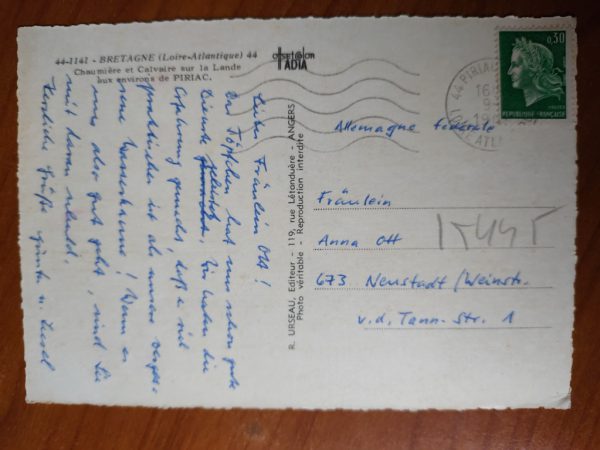 44-1141 - BRETAGNE (Loire-Atlantique) 44
Chaumière et Calvaire sur la Lande
aux environs de PIRIAC.
offset color
ADIA
Liebes Fräulein Ott!
Das Töpfchen hat uns schon gute
Dienste geleistet. Wir haben die
Erfahrung gemacht, daß es viel
praktischer ist als unsere
Wenn es
uns also gut geht, sind Sie
mit daran schuld.
Herzliche Grüße
R. URSEAU, Editeur - 119, rue Létanduère - ANGERS
Photo véritable - Reproduction interdite
44 PIRIAC
16
19
ATL
0,30
REPUBLIQUE FRANÇAISE
Allemagne fédérale
Fräulein
Anna Ott
15445
673 Neustadt/Weinstr.
v.d. Tann-Str. 1